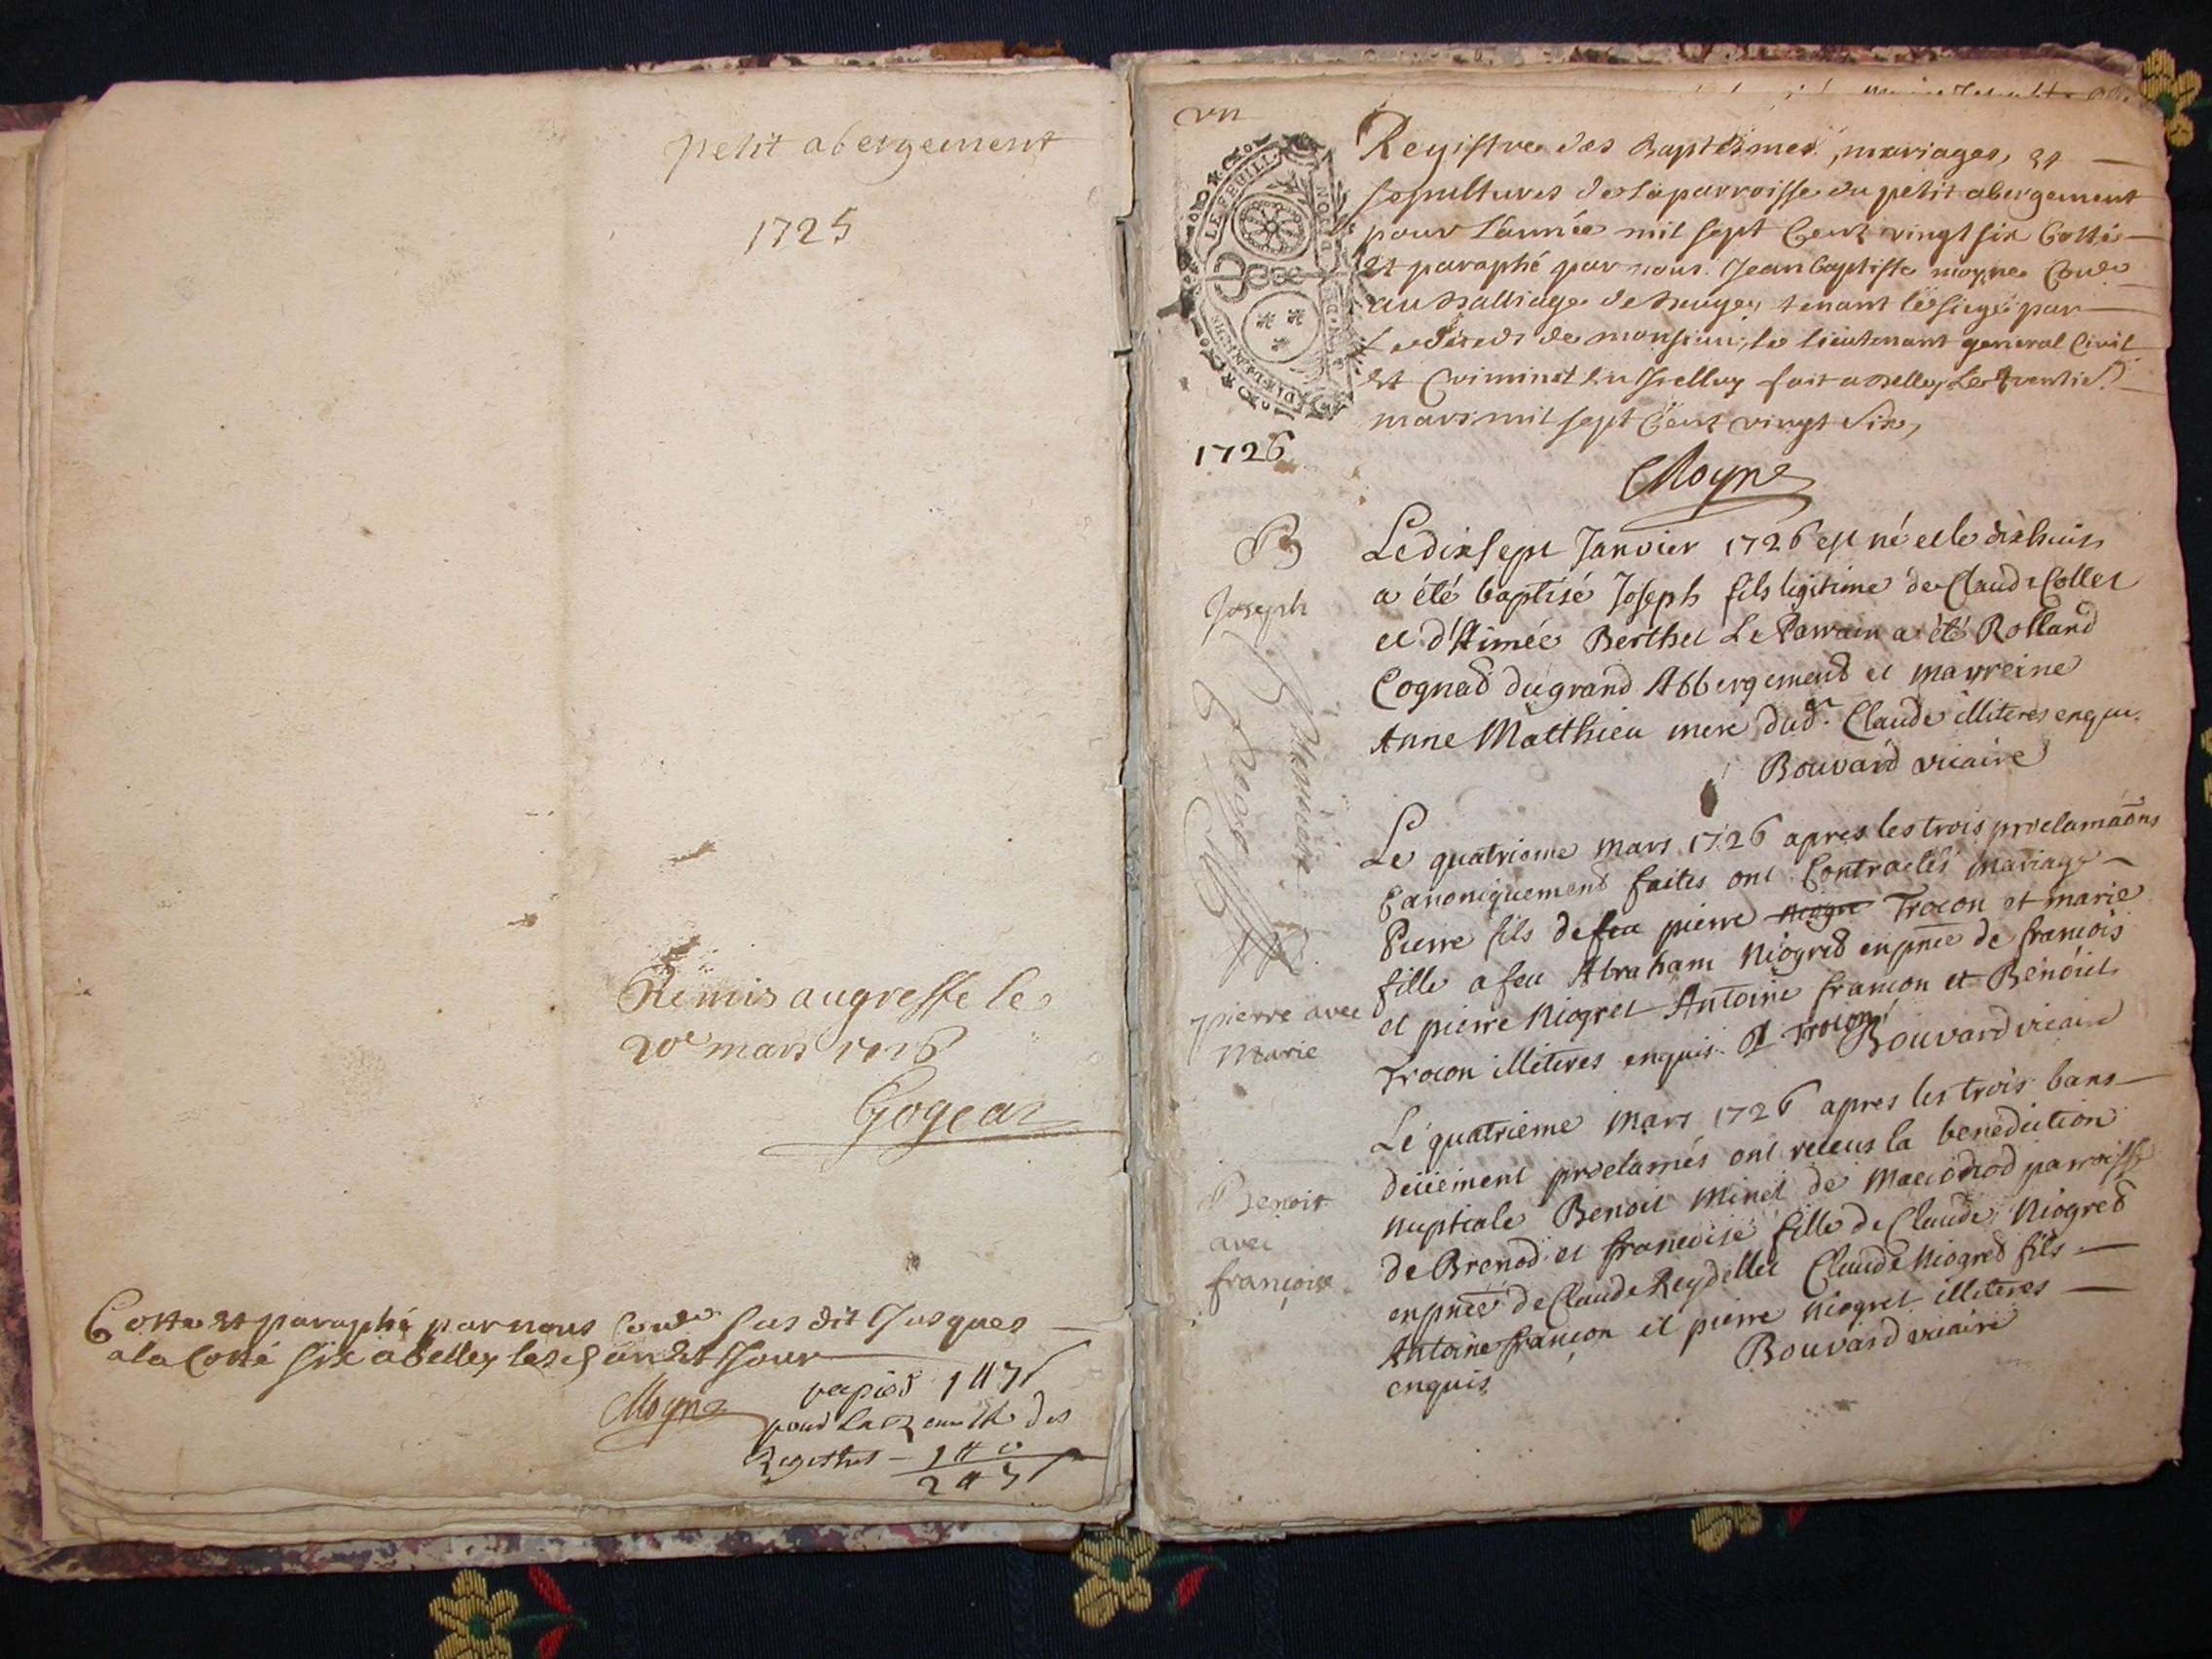 petit abergement
1725
Remis au greffe le
20e mars 1726
Gogeat
Cotté et paraphé par nous Coner susdit Jusques
a la Cotte six a belley les an et Jour
Moyne
papier 1 ₶ 7 s
pour la des
Registres – 1 ₶ 0
2 ₶ 7 s
un
Registre des Baptêmes, mariages, et
sepultures de la parroisse du petit abergement
pour l'année mil sept Cent vingt six Cotté
et paraphé par nous Jean baptiste moyne Coner
au Balliage de Beugey tenant le siege par
Le deceds de monsieur le lieutenant general Civil
et Criminel du fait a Belley Le trentie
mars mil sept Cent vingt Six,
LE FEUILL.
1726
Moyne
B
Joseph
Le dix sept Janvier 1726 est né et le dixhuit
a été baptisé Joseph fils legitime de Claude Collet
et d'Aimée Berthet Le Parrain a été Rolland
Cognad du grand Abbergement et marreine
Anne Matthieu mere dud. Claude illiteres enqu.
Bouvard vicaire
pierre avec
Marie
Le quatrieme mars 1726 apres les trois proclamaōns
Canoniquement faites ont Contractés mariage
Pierre fils de feu pierre Niogre Trocon et marie
fille a feu Abraham Niogred en pnce de francois
et pierre Niogret Antoine francon et Benoict
Trocon illiteres enquis P Trocon
Bouvard vicaire
Benoit
avec
françoise
Le quatrieme Mars 1726 apres les trois bans
deüement proclamés ont receus la benediction
nuptiale Benoit Minet de Macconod parroisse
de Brenod et francoise fille de Claude Niogred
en pnce de Claude Reydellet Claude Niogred fils
Antoine francon et pierre Niogret illiteres
enquis
Bouvard vicaire